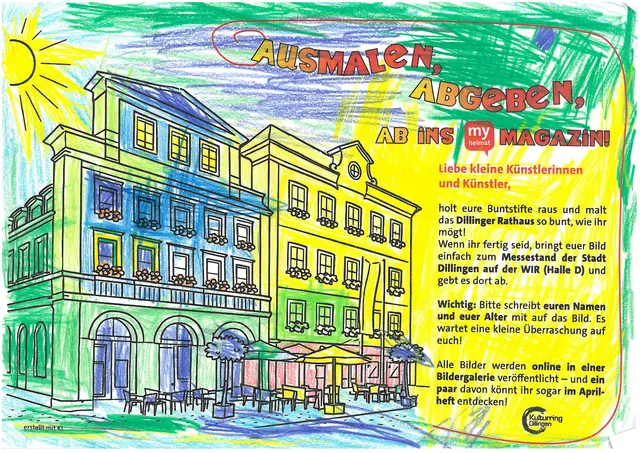 AUSMALEN,
ABGEBEN,
AB INS my heimat MAGAZIN!
Liebe kleine Künstlerinnen
und Künstler,
holt eure Buntstifte raus und malt
das Dillinger Rathaus so bunt, wie ihr
mögt!
Wenn ihr fertig seid, bringt euer Bild
einfach zum Messestand der Stadt
Dillingen auf der WIR (Halle D) und
gebt es dort ab.
Wichtig: Bitte schreibt euren Namen
und euer Alter mit auf das Bild. Es
wartet eine kleine Überraschung auf
euch!
Alle Bilder werden online in einer
Bildergalerie veröffentlicht – und ein
paar davon könnt ihr sogar im April-
heft entdecken!
Kulturring
Dillingen
erstellt mit KI